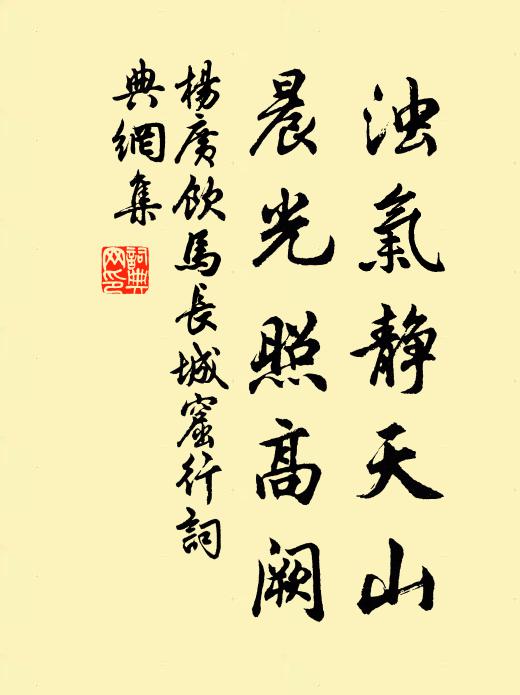 浊氣静天山
晨光照高阙
楊廣飲馬長城窟行詞
典網集
詞典
网印